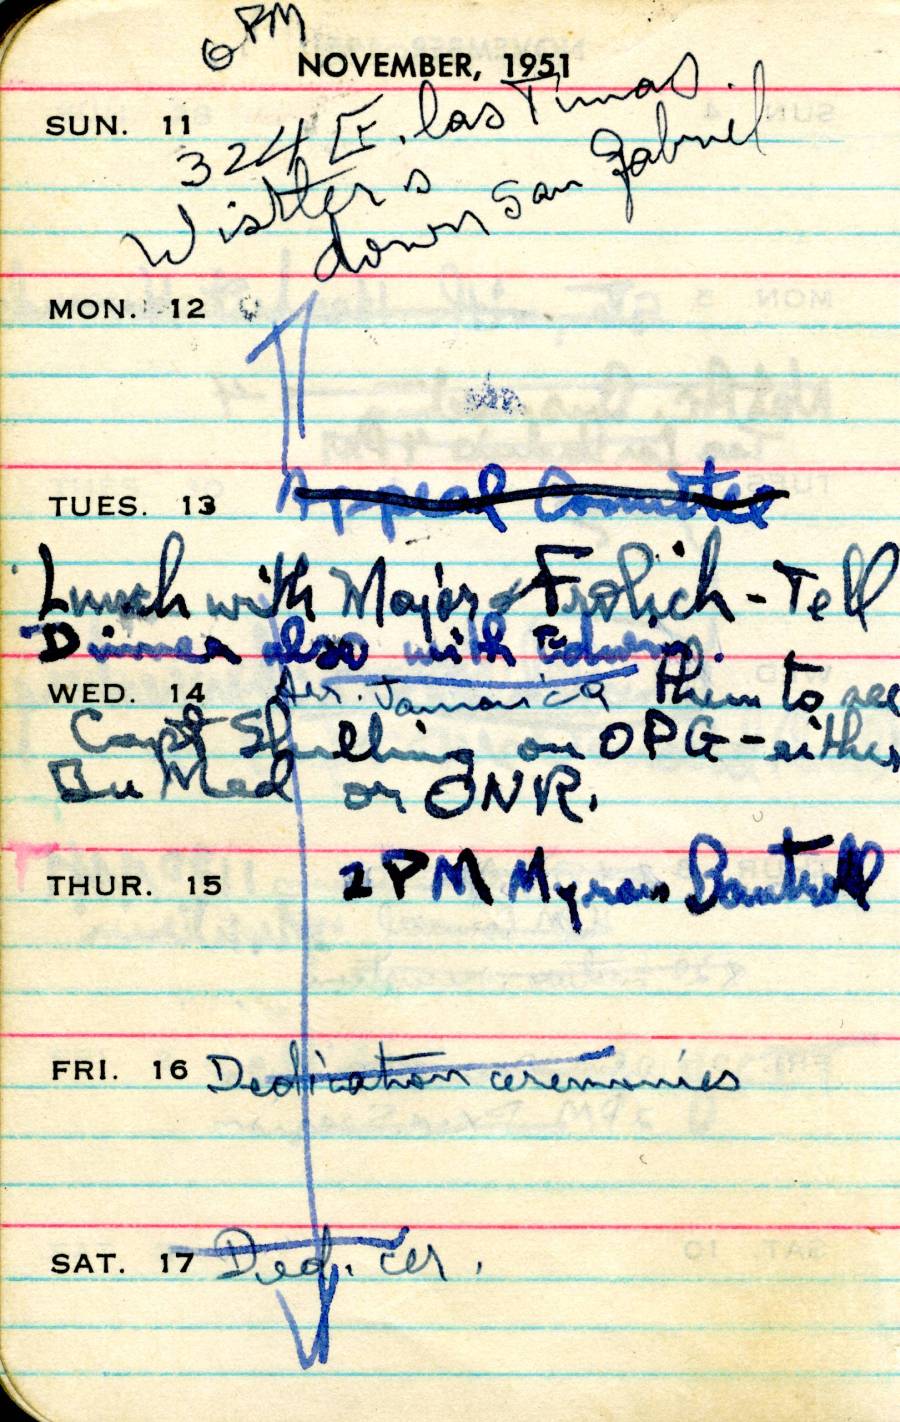 6 PM
NOVEMBER, 1951
SUN. 11
324 E. Las Tunas
Wistters
down San Gabriel
MON. 12
TUES. 13
Appeal Committee
Lunch with Major Frolich - Tell
Dinner also with Edwins.
WED. 14
Arr. Jamaica them to see
Capt Shilling on OPG - either
Bu Med or ONR.
THUR. 15
2 PM Myron
FRI. 16 Dedication ceremonies
SAT. 17 Ded. cer.